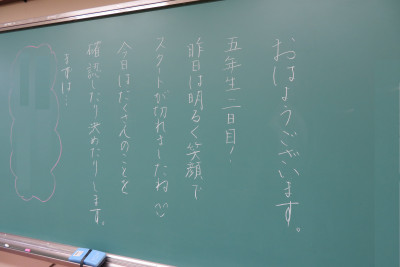 おはようございます。
五年生二日目!
昨日は明るく笑顔で
スタートが切れましたね
今日はたくさんのことを
確認したり決めたりします。
まずは…